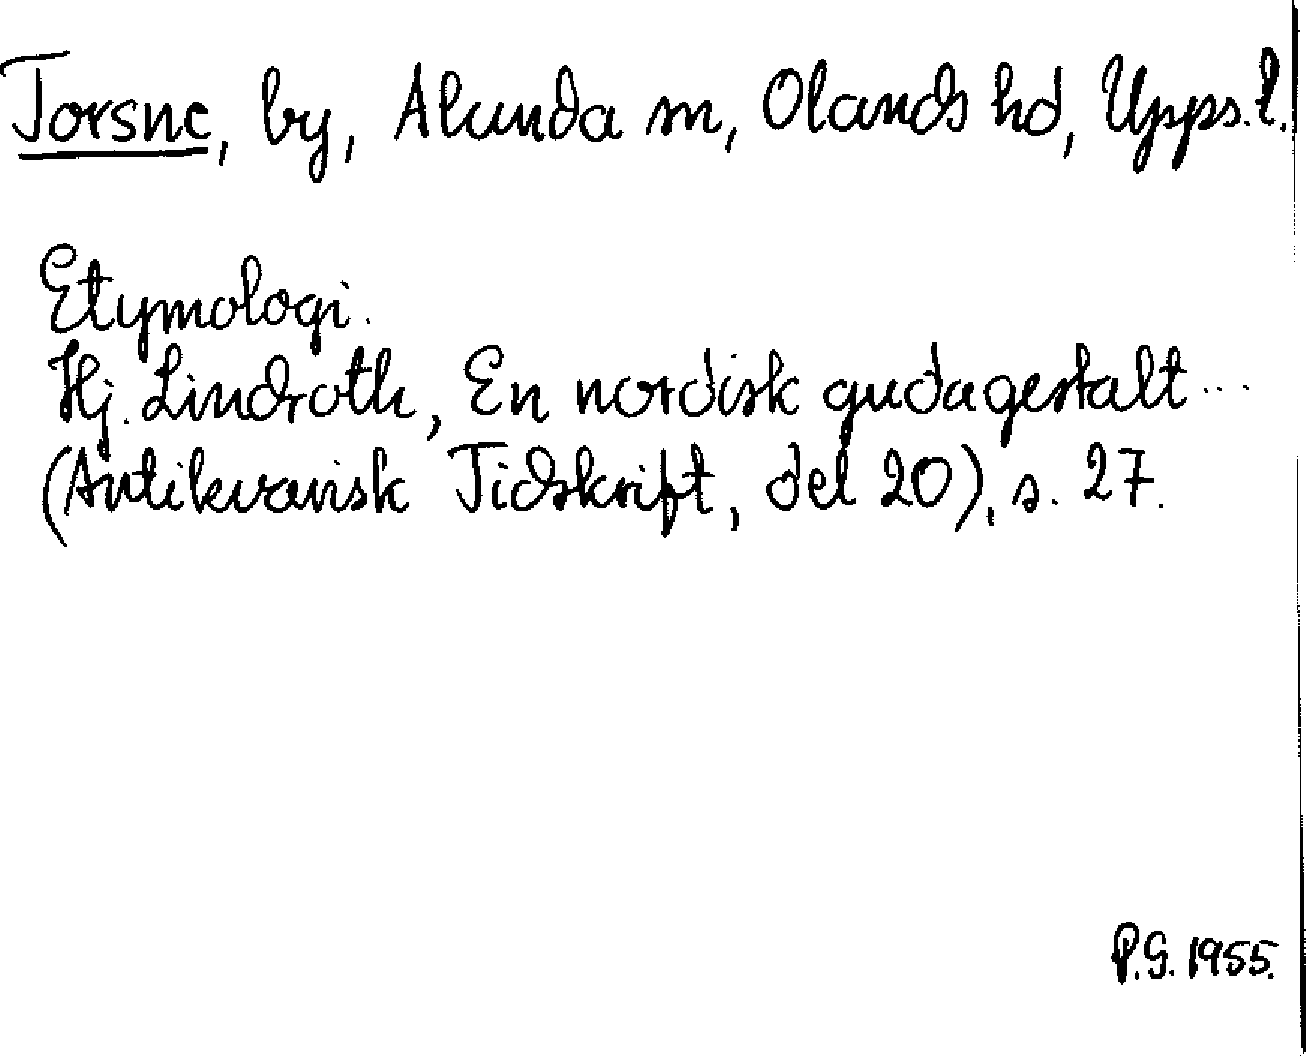 Torsne, by, Alunda sn, Olands hd, Upps. l.
Etymologi.
Hj. Lindroth, En nordisk gudagestalt...
(Antikvarisk Tidskrift, del 20), s. 27.
P.G. 1955.